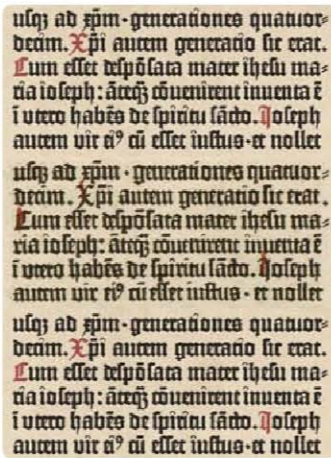 usqꝫ ad xp̄m · generationes quatuor⸗
decim. Xp̄i autem generatio sic erat.
Cum esset despōsata mater ihesu ma⸗
ria ioseph: āteqꝫ cōuenirent inuenta ē
ī utero habēs de spiritu sācto. Ioseph
autem vir ei⁹ cū esset iustus · et nollet
usqꝫ ad xp̄m · generationes quatuor⸗
decim. Xp̄i autem generatio sic erat.
Cum esset despōsata mater ihesu ma⸗
ria ioseph: āteqꝫ cōuenirent inuenta ē
ī utero habēs de spiritu sācto. Ioseph
autem vir ei⁹ cū esset iustus · et nollet
usqꝫ ad xp̄m · generationes quatuor⸗
decim. Xp̄i autem generatio sic erat.
Cum esset despōsata mater ihesu ma⸗
ria ioseph: āteqꝫ cōuenirent inuenta ē
ī utero habēs de spiritu sācto. Ioseph
autem vir ei⁹ cū esset iustus · et nollet